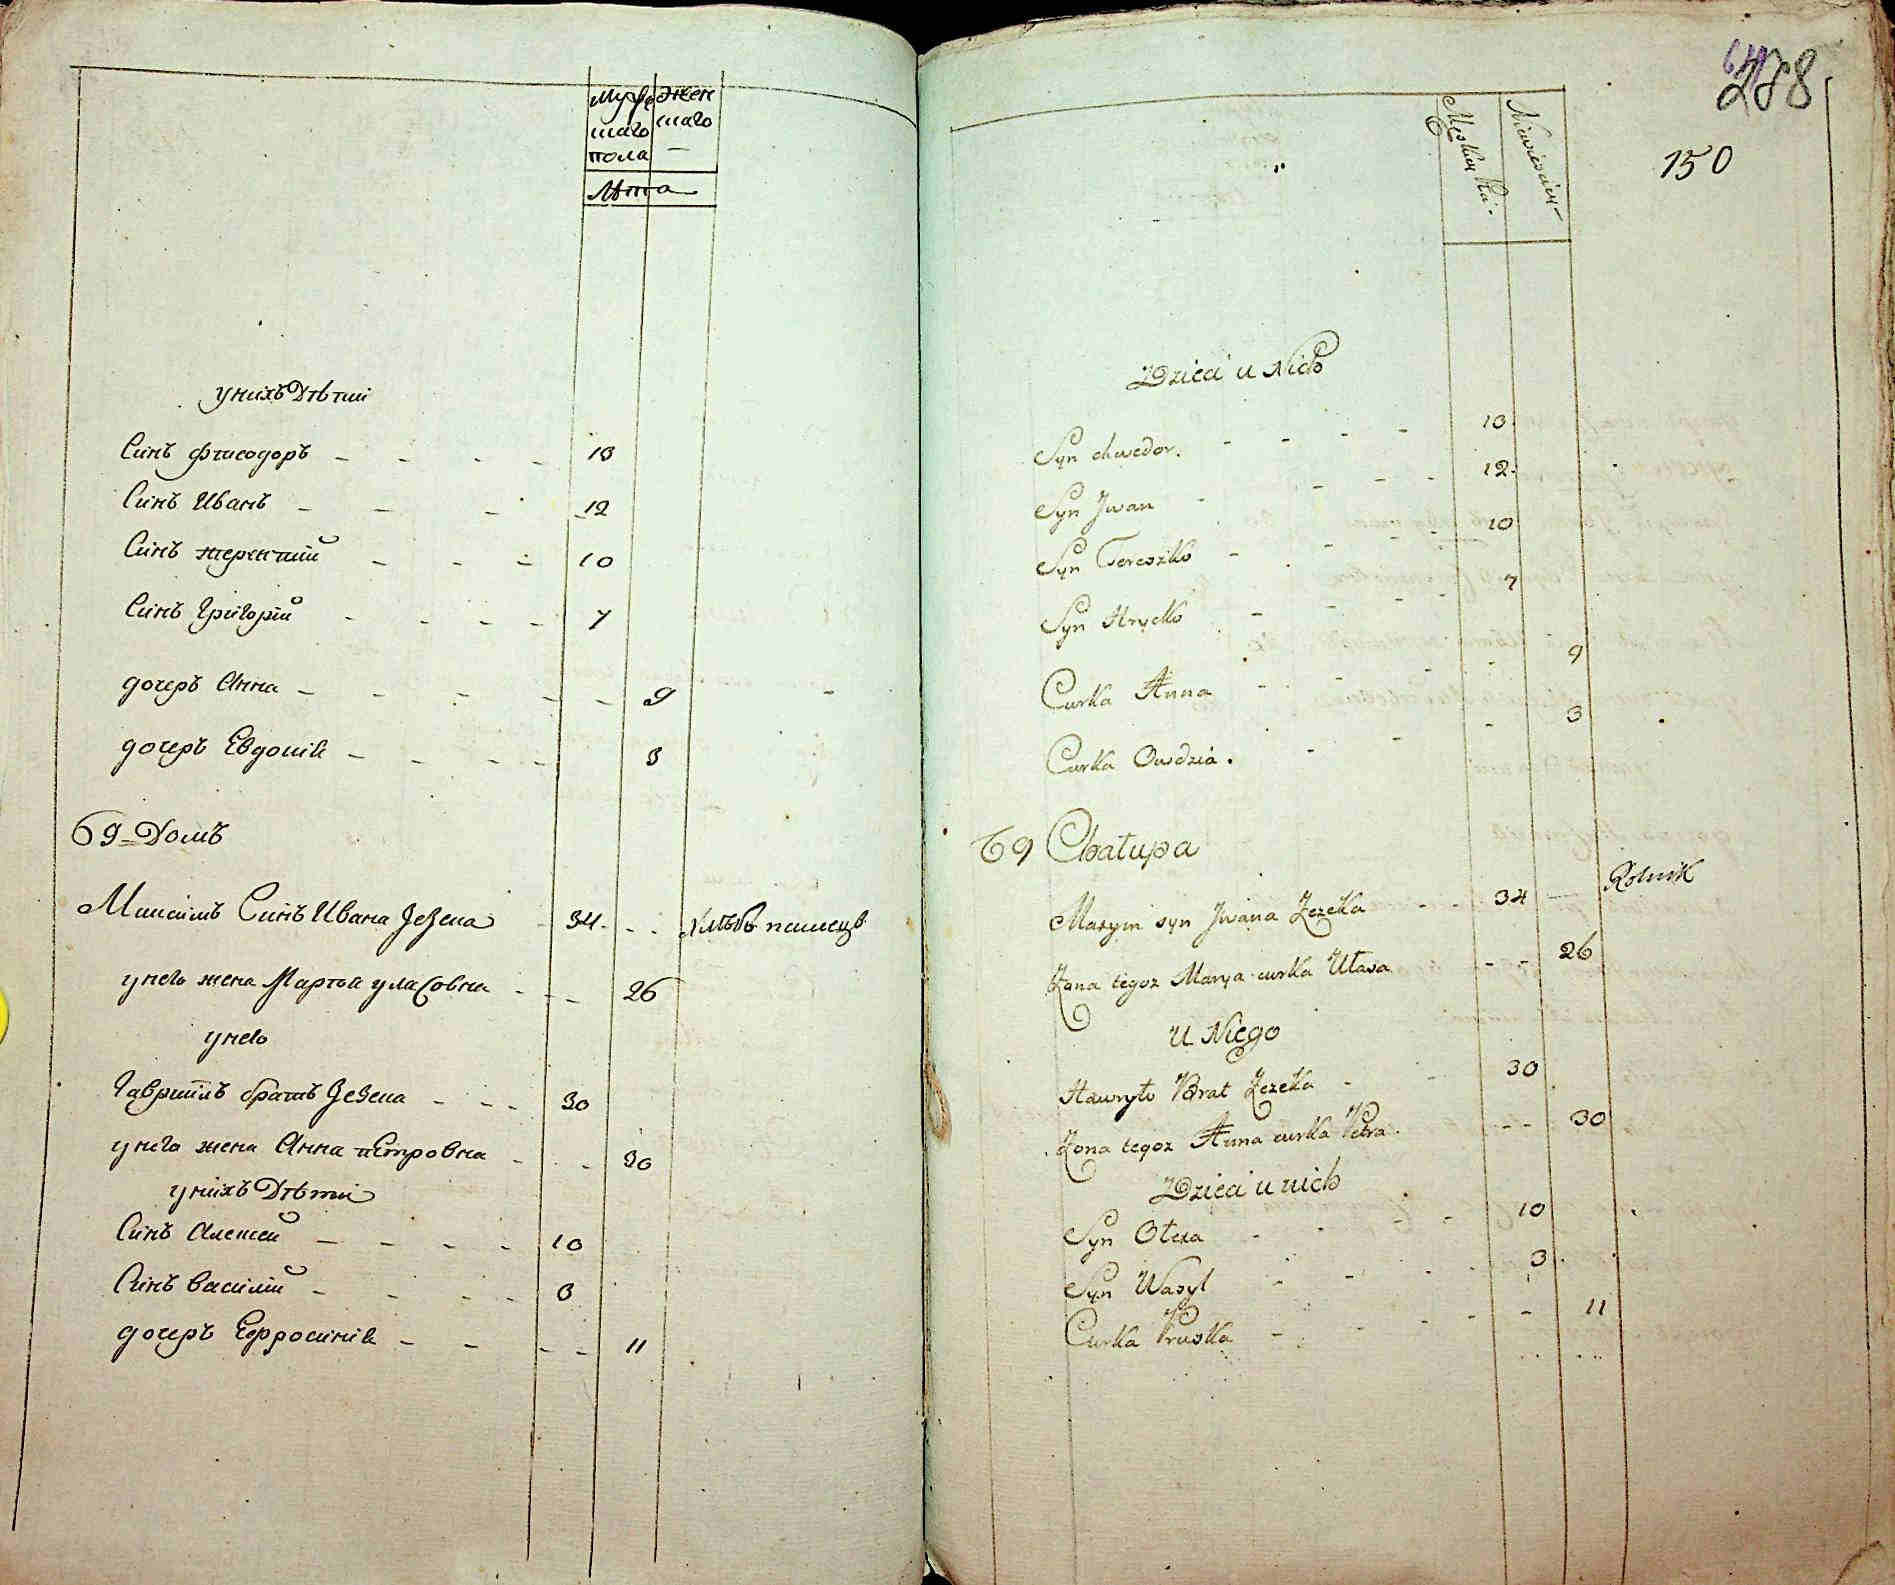 Мужескаго Женскаго
пола —
Лѣта
у нихъ Дѣтии
Синъ Фтеодоръ 13
Синъ Иванъ 12
Синъ терентий 10
Синъ Григорій 7
дочеръ Анна 9
дочеръ Евдокія 3
69 = Домъ
Максимъ Синъ Ивана Зезека 34
у него жена Марта уласовна 26
у него
Гавриилъ братъ Зезека 30
у него жена Анна петровна 30
у нихъ Дѣти
Синъ Алексей 10
Синъ Василій 3
дочеръ Ефросинія 11
288
150
Dzieci u Nich
Syn chwedor. 13
Syn Jwan 12.
Syn Tereszko 10
Syn Hrycko 7
Curka Anna 9
Curka Owdzia. 3
69 Chałupa
Maxym syn Jwana Zezeka 34 Rolnik
Zona tegoz Marya curka Ułasa 26
U Niego
Hawryło Brat Zezeka 30
Zona tegoz Anna curka Petra. 30
Dzieci u nich
Syn Olexa 10
Syn Wasyl 3
Curka Pruska 11